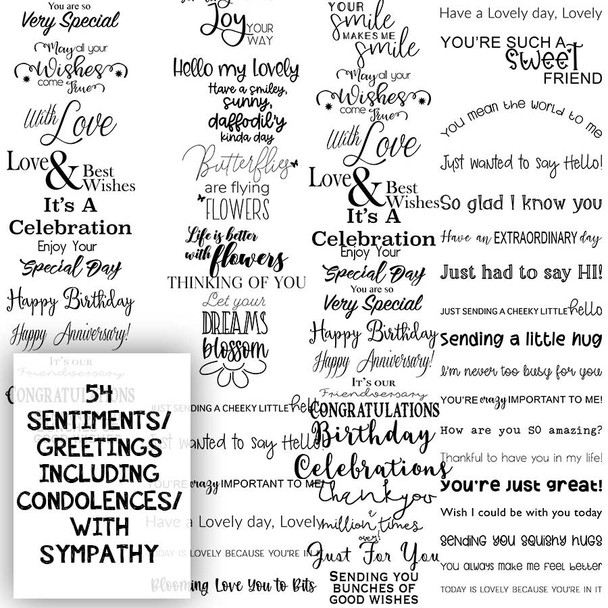 You are so
Very Special
May all your
Wishes
come True
With
Love
Love & Best
Wishes
It's A
Celebration
Enjoy Your
Special Day
Happy Birthday
Happy Anniversary!
IT'S OUR
Friendversary
CONGRATULATIONS
54
SENTIMENTS/
GREETINGS
INCLUDING
CONDOLENCES/
WITH
SYMPATHY
Joy YOUR
WAY
Hello my Lovely
Have a smiley,
sunny,
daffodil'y
kinda day
Butterflies
are flying
FLOWERS
Life is better
with flowers
THINKING OF YOU
Let your
DREAMS
blossom
JUST SENDING A CHEEKY LITTLE hello
Just wanted to say Hello!
YOU'RE crazy IMPORTANT TO ME!
Have a Lovely day, Lovely
TODAY IS LOVELY BECAUSE YOU'RE IN IT
Blooming Love You to Bits
YOUR
smile
MAKES ME
smile
May all your
Wishes
come True
With
Love
Love & Best
Wishes
It's A
Celebration
Enjoy Your
Special Day
You are so
Very Special
Happy Birthday
Happy Anniversary!
IT'S OUR
Friendversary
CONGRATULATIONS
Birthday
Celebrations
thank you
a
million times
over!
Just For You
SENDING YOU
BUNCHES OF
GOOD WISHES
Have a Lovely day, Lovely
YOU'RE SUCH A
sweet
FRIEND
You mean the world to me
Just wanted to say Hello!
So glad I know you
Have an EXTRAORDINARY day
Just had to say HI!
JUST SENDING A CHEEKY LITTLE hello
Sending a little hug
I'm never too busy for you
YOU'RE crazy IMPORTANT TO ME!
How are you SO amazing?
Thankful to have you in my life!
You're just great!
Wish I could be with you today
sending you squishy hugs
You always make me feel better
TODAY IS LOVELY BECAUSE YOU'RE IN IT